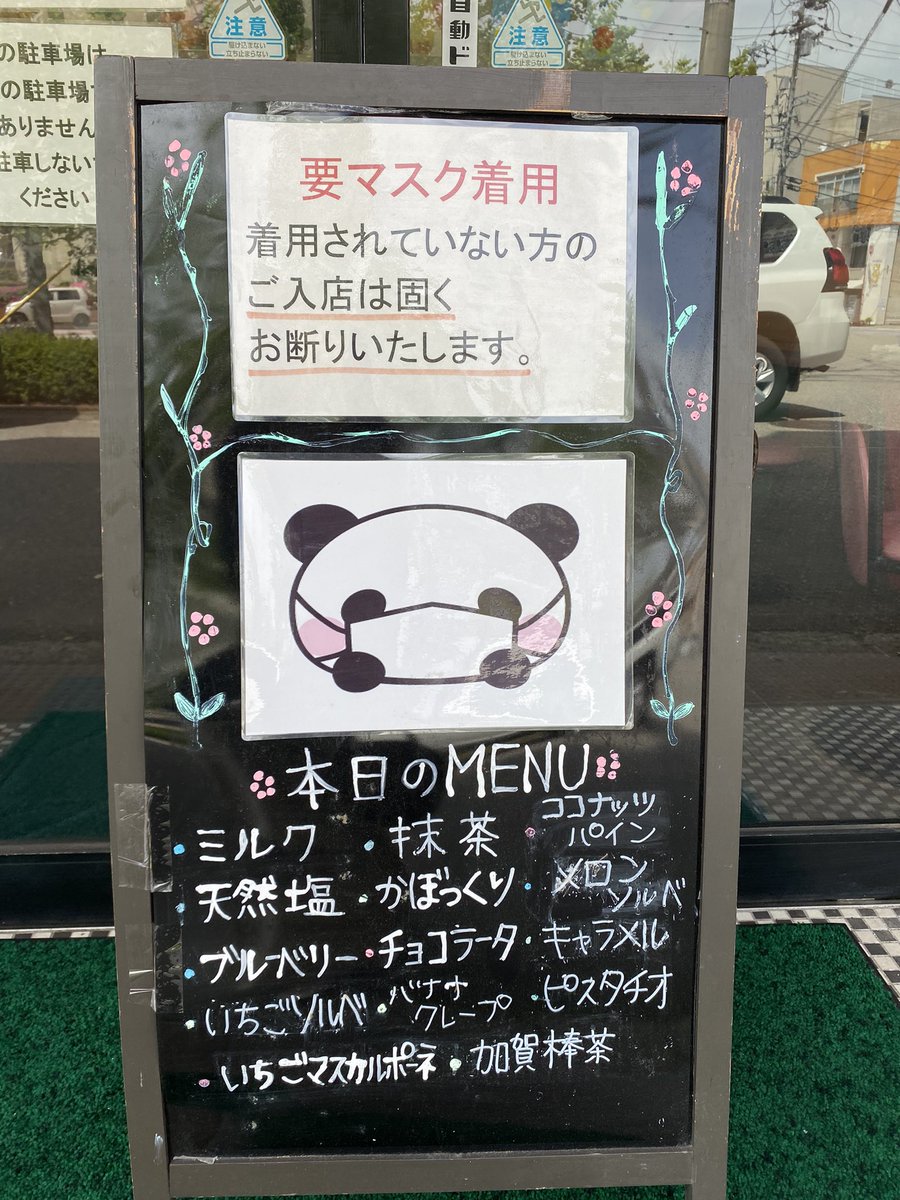 の駐車場は
の駐車場
ありません
駐車しない
ください
注意
駆け込まない
立ち止まらない
自動ド
注意
駆け込まない
立ち止まらない
要マスク着用
着用されていない方の
ご入店は固く
お断りいたします。
本日のMENU
・ミルク
・抹茶
・ココナッツ
パイン
・天然塩
・かぼっくり
・メロン
ソルベ
・ブルーベリー
・チョコラータ
・キャラメル
・いちごソルベ
・バナナ
クレープ
・ピスタチオ
・いちごマスカルポーネ
・加賀棒茶